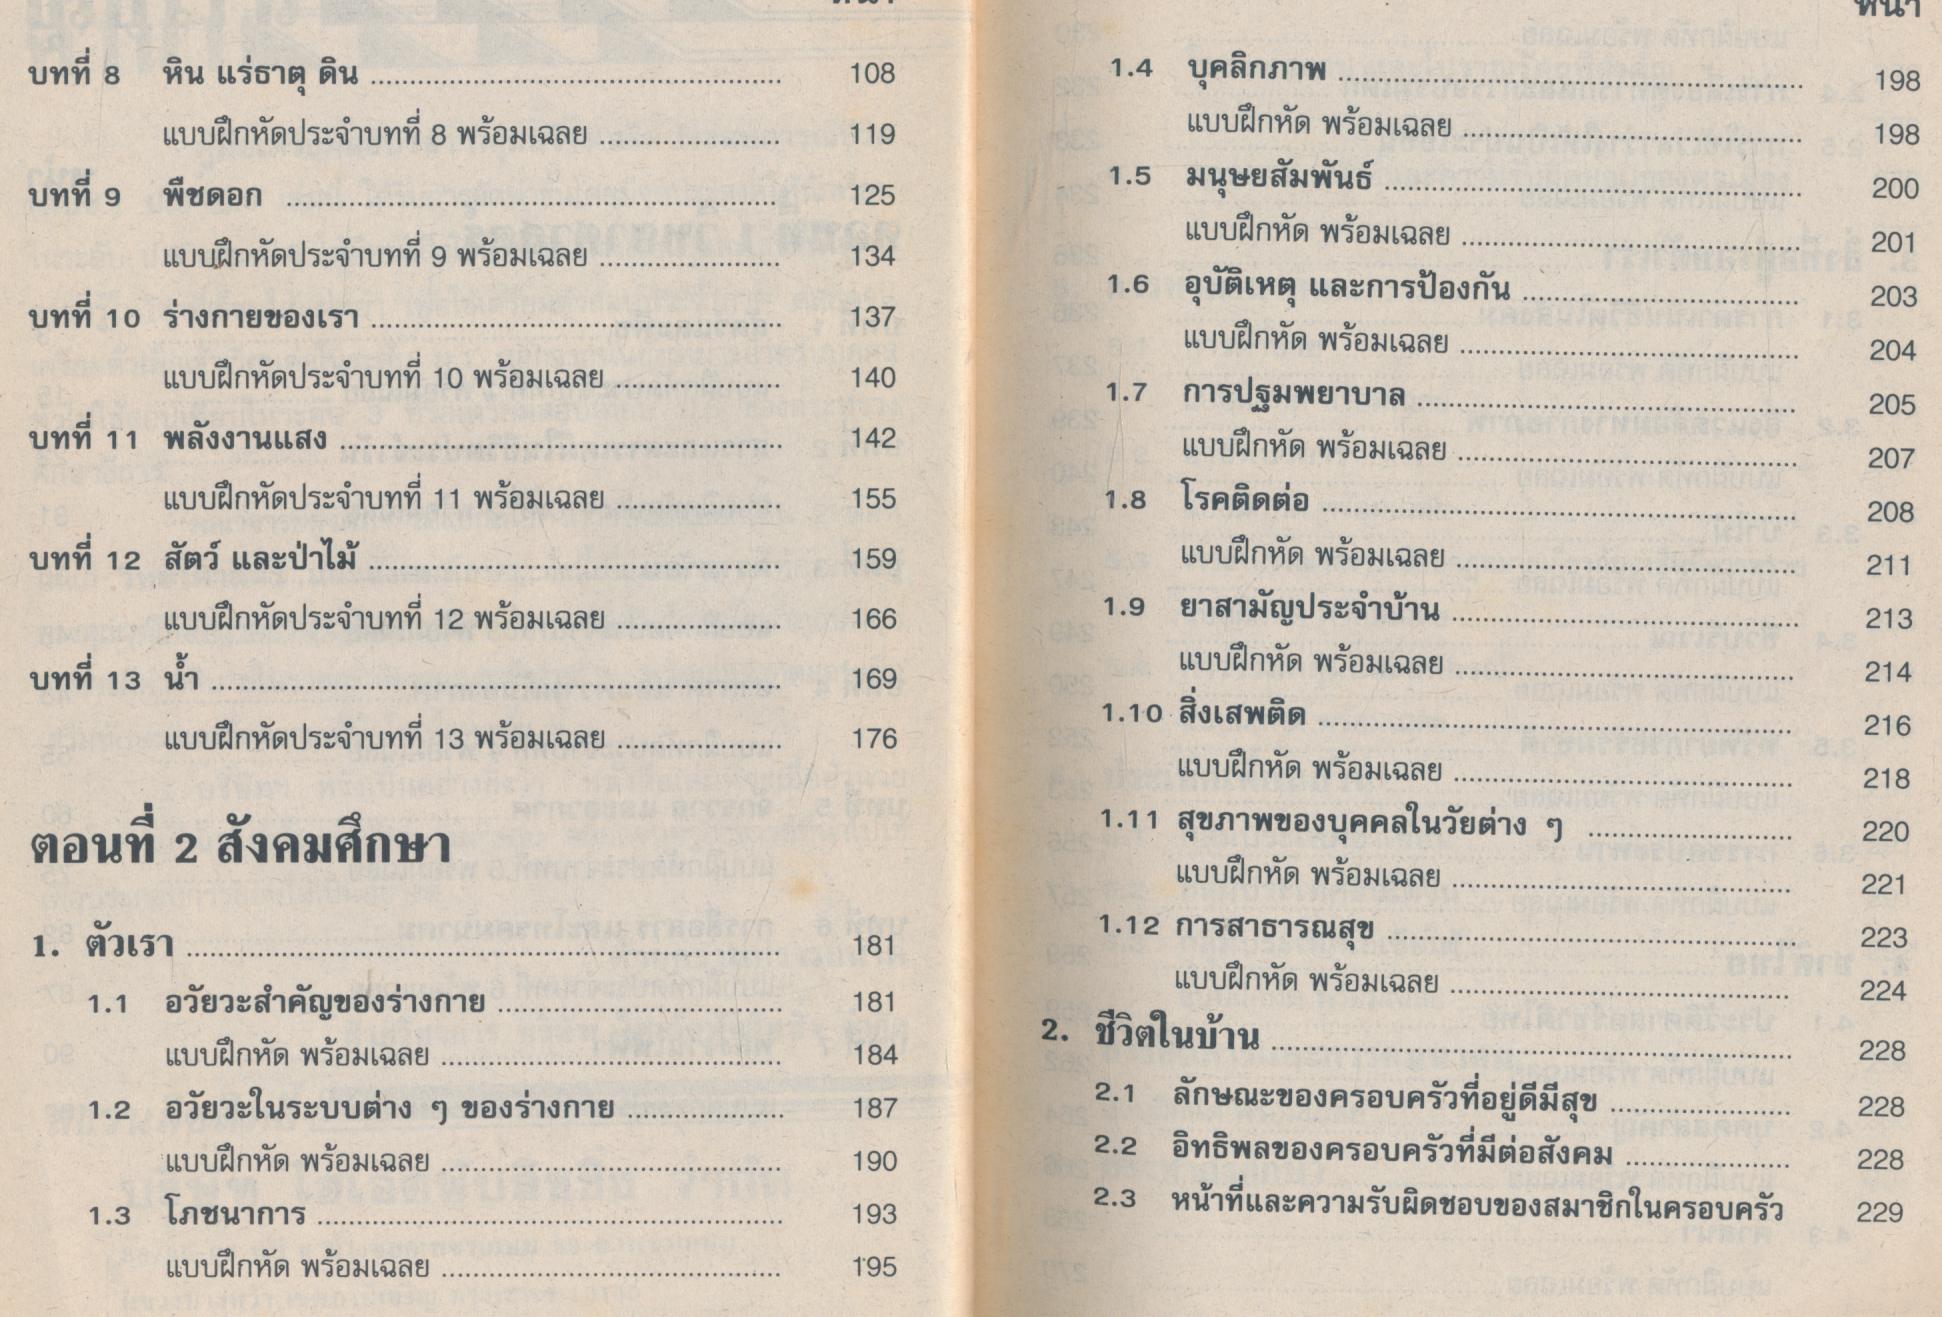 หน้า
บทที่ 8 หิน แร่ธาตุ ดิน ........................ 108
แบบฝึกหัดประจำบทที่ 8 พร้อมเฉลย ........................ 119
บทที่ 9 พืชดอก ........................ 125
แบบฝึกหัดประจำบทที่ 9 พร้อมเฉลย ........................ 134
บทที่ 10 ร่างกายของเรา ........................ 137
แบบฝึกหัดประจำบทที่ 10 พร้อมเฉลย ........................ 140
บทที่ 11 พลังงานแสง ........................ 142
แบบฝึกหัดประจำบทที่ 11 พร้อมเฉลย ........................ 155
บทที่ 12 สัตว์ และป่าไม้ ........................ 159
แบบฝึกหัดประจำบทที่ 12 พร้อมเฉลย ........................ 166
บทที่ 13 น้ำ ........................ 169
แบบฝึกหัดประจำบทที่ 13 พร้อมเฉลย ........................ 176
ตอนที่ 2 สังคมศึกษา
1. ตัวเรา ........................ 181
1.1 อวัยวะสำคัญของร่างกาย ........................ 181
แบบฝึกหัด พร้อมเฉลย ........................ 184
1.2 อวัยวะในระบบต่าง ๆ ของร่างกาย ........................ 187
แบบฝึกหัด พร้อมเฉลย ........................ 190
1.3 โภชนาการ ........................ 193
แบบฝึกหัด พร้อมเฉลย ........................ 195
หน้า
1.4 บุคลิกภาพ ........................ 198
แบบฝึกหัด พร้อมเฉลย ........................ 198
1.5 มนุษยสัมพันธ์ ........................ 200
แบบฝึกหัด พร้อมเฉลย ........................ 201
1.6 อุบัติเหตุ และการป้องกัน ........................ 203
แบบฝึกหัด พร้อมเฉลย ........................ 204
1.7 การปฐมพยาบาล ........................ 205
แบบฝึกหัด พร้อมเฉลย ........................ 207
1.8 โรคติดต่อ ........................ 208
แบบฝึกหัด พร้อมเฉลย ........................ 211
1.9 ยาสามัญประจำบ้าน ........................ 213
แบบฝึกหัด พร้อมเฉลย ........................ 214
1.10 สิ่งเสพติด ........................ 216
แบบฝึกหัด พร้อมเฉลย ........................ 218
1.11 สุขภาพของบุคคลในวัยต่าง ๆ ........................ 220
แบบฝึกหัด พร้อมเฉลย ........................ 221
1.12 การสาธารณสุข ........................ 223
แบบฝึกหัด พร้อมเฉลย ........................ 224
2. ชีวิตในบ้าน ........................ 228
2.1 ลักษณะของครอบครัวที่อยู่ดีมีสุข ........................ 228
2.2 อิทธิพลของครอบครัวที่มีต่อสังคม ........................ 228
2.3 หน้าที่และความรับผิดชอบของสมาชิกในครอบครัว 229